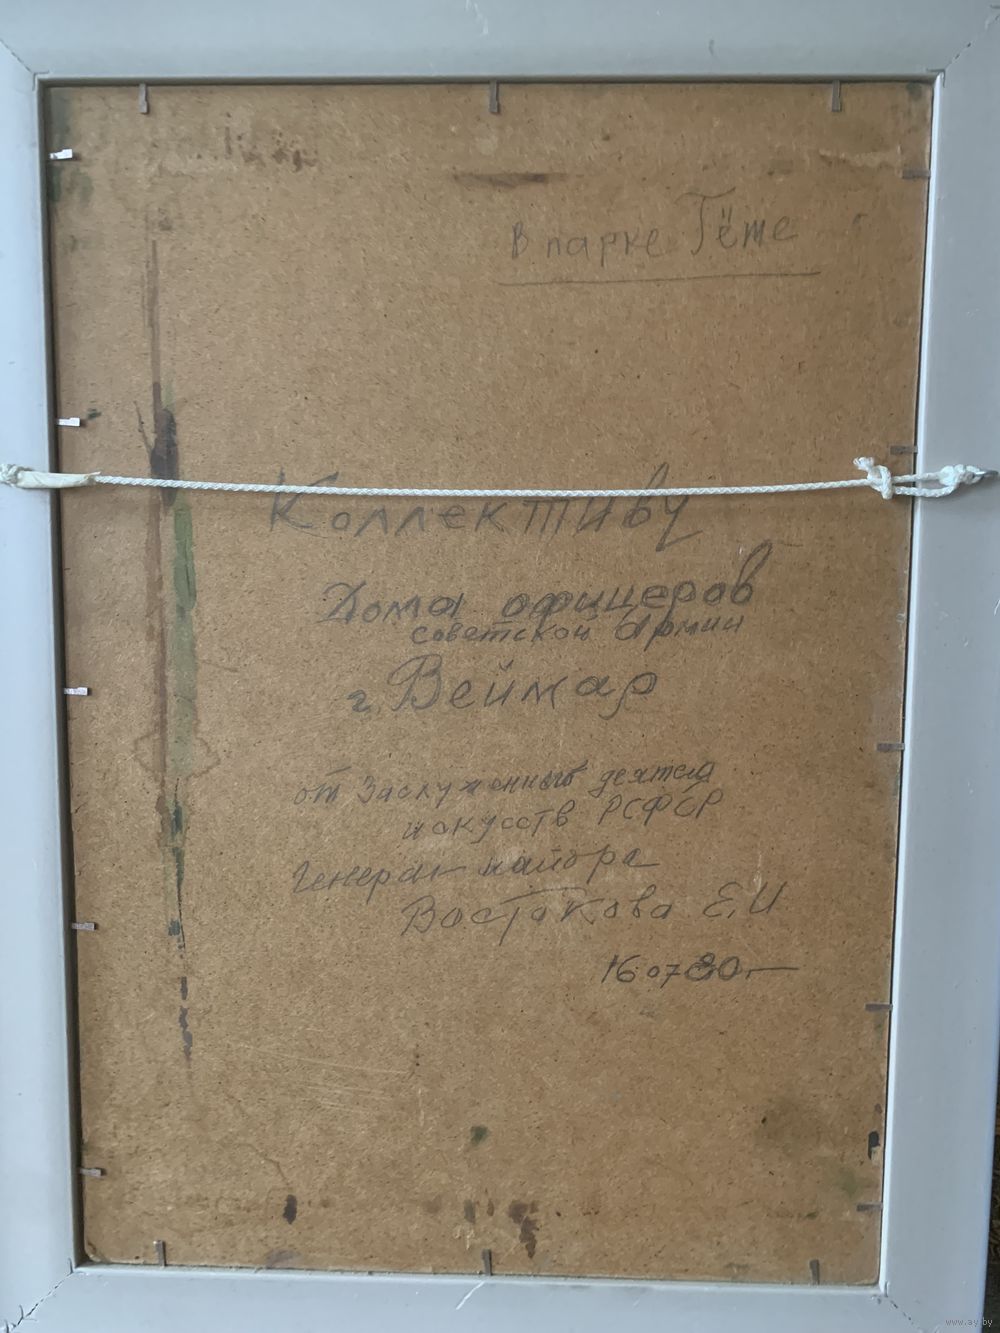 В парке Гёте
Коллективу
Дома офицеров
советской Армии
г. Веймар
от Заслуженного деятеля
искусств РСФСР
Генерал майора
Востокова Е.И
16.07.80г
www.ay.by